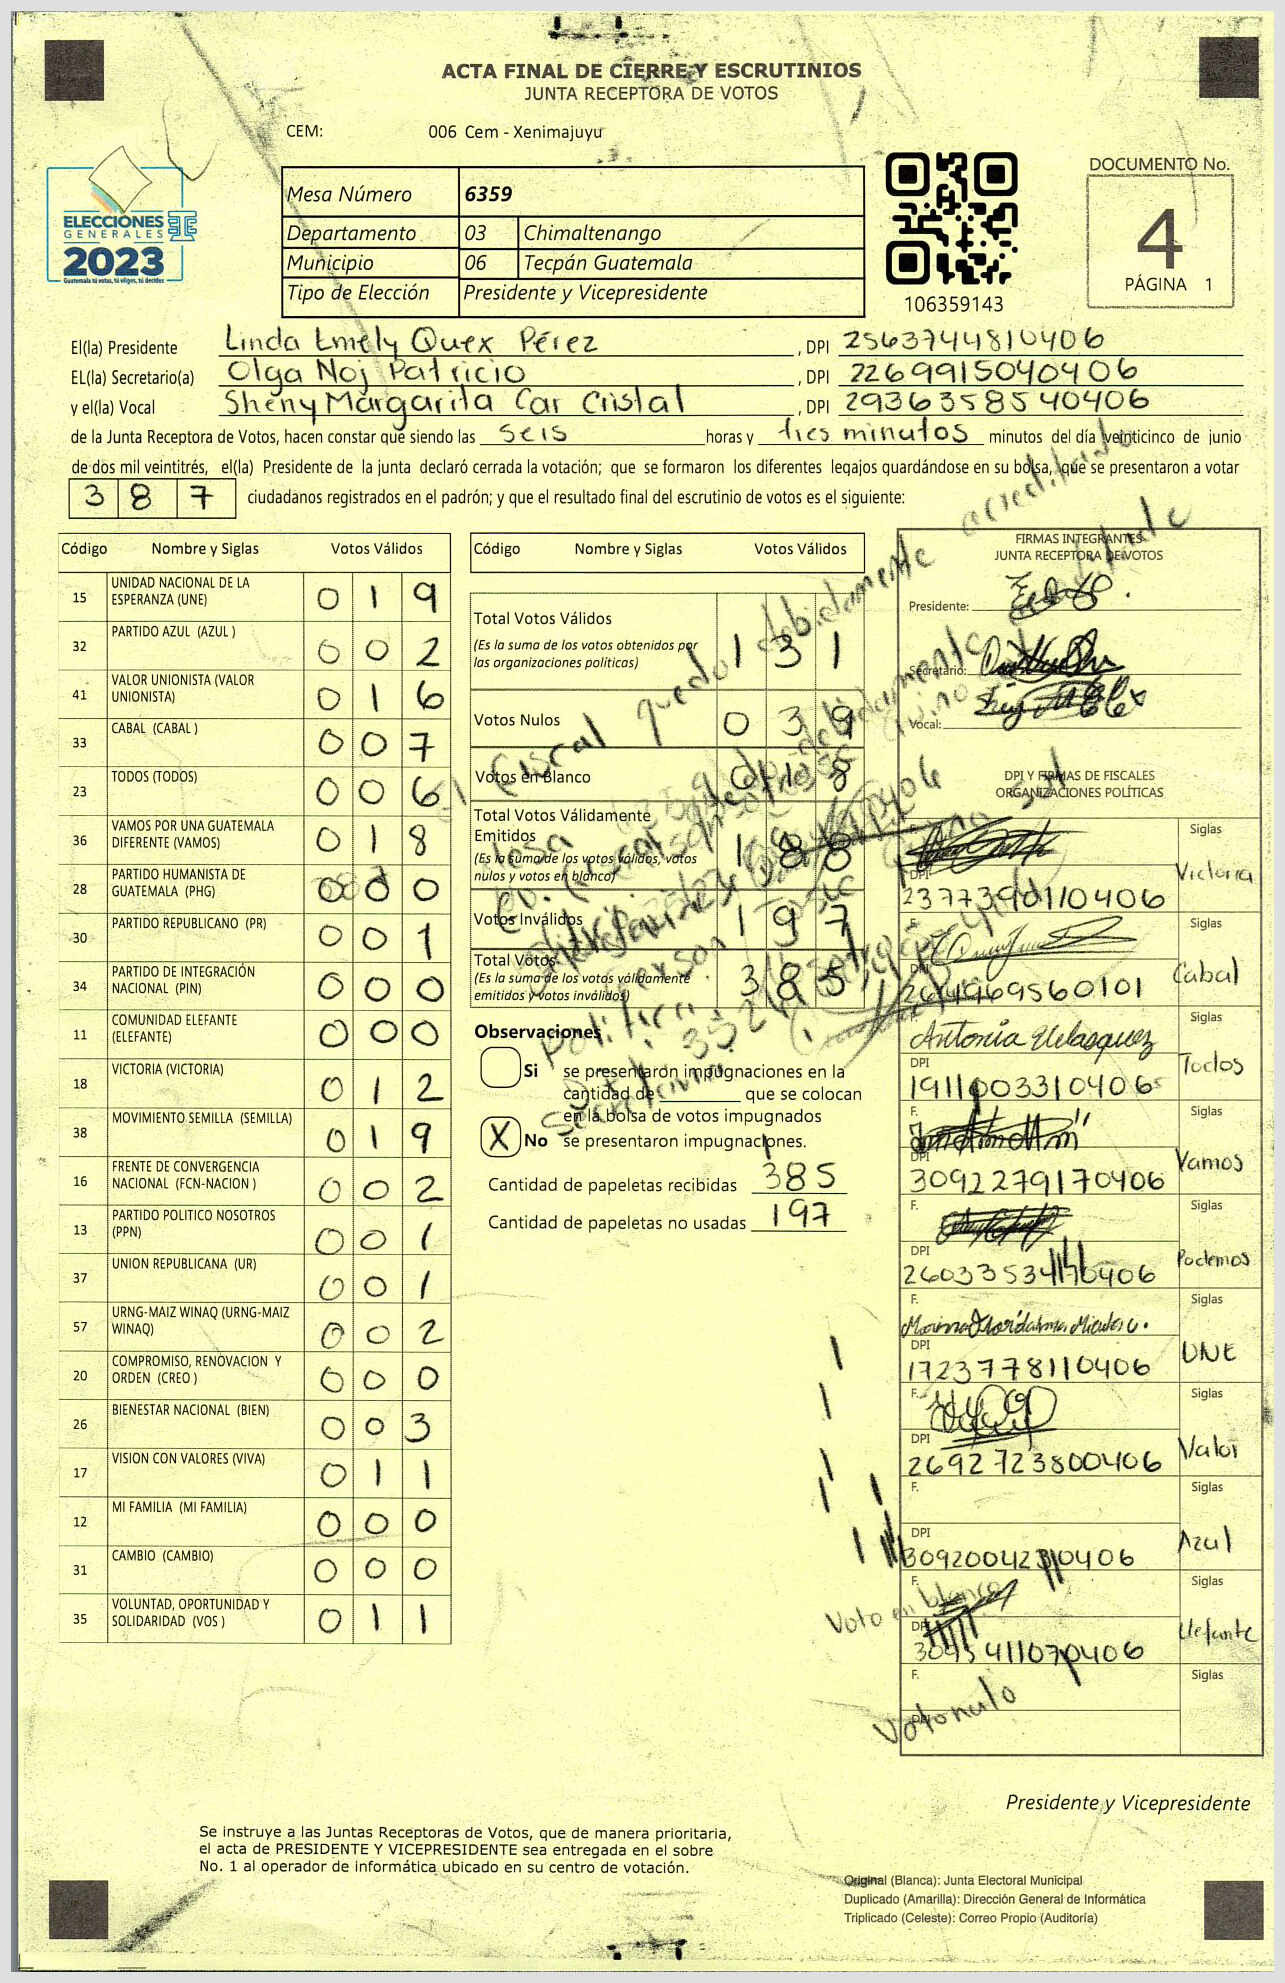 ACTA FINAL DE CIERRE Y ESCRUTINIOS
JUNTA RECEPTORA DE VOTOS
CEM: 006 Cem - Xenimajuyu
ELECCIONES
GENERALES
2023
Guatemala tú votas, tú eliges, tú decides
Mesa Número 6359
Departamento 03 Chimaltenango
Municipio 06 Tecpán Guatemala
Tipo de Elección Presidente y Vicepresidente
106359143
DOCUMENTO No.
4
PÁGINA 1
El(la) Presidente Linda Emely Quex Pérez , DPI 2563744810406
EL(la) Secretario(a) Olga Noj Patricio , DPI 2269915040406
y el(la) Vocal Sheny Margarita Car Cristal , DPI 2936358540406
de la Junta Receptora de Votos, hacen constar que siendo las seis horas y tres minutos minutos del día veinticinco de junio
de dos mil veintitrés, el(la) Presidente de la junta declaró cerrada la votación; que se formaron los diferentes legajos guardándose en su bolsa, que se presentaron a votar
387 ciudadanos registrados en el padrón; y que el resultado final del escrutinio de votos es el siguiente:
Código Nombre y Siglas Votos Válidos
15 UNIDAD NACIONAL DE LA ESPERANZA (UNE) 019
32 PARTIDO AZUL (AZUL ) 002
41 VALOR UNIONISTA (VALOR UNIONISTA) 016
33 CABAL (CABAL ) 007
23 TODOS (TODOS) 006
36 VAMOS POR UNA GUATEMALA DIFERENTE (VAMOS) 018
28 PARTIDO HUMANISTA DE GUATEMALA (PHG) 000
30 PARTIDO REPUBLICANO (PR) 001
34 PARTIDO DE INTEGRACIÓN NACIONAL (PIN) 000
11 COMUNIDAD ELEFANTE (ELEFANTE) 000
18 VICTORIA (VICTORIA) 012
38 MOVIMIENTO SEMILLA (SEMILLA) 019
16 FRENTE DE CONVERGENCIA NACIONAL (FCN-NACION ) 002
13 PARTIDO POLITICO NOSOTROS (PPN) 001
37 UNION REPUBLICANA (UR) 001
57 URNG-MAIZ WINAQ (URNG-MAIZ WINAQ) 002
20 COMPROMISO, RENOVACION Y ORDEN (CREO ) 000
26 BIENESTAR NACIONAL (BIEN) 003
17 VISION CON VALORES (VIVA) 011
12 MI FAMILIA (MI FAMILIA) 000
31 CAMBIO (CAMBIO) 000
35 VOLUNTAD, OPORTUNIDAD Y SOLIDARIDAD (VOS ) 011
Código Nombre y Siglas Votos Válidos
Total Votos Válidos 131
(Es la suma de los votos obtenidos por
las organizaciones políticas)
Votos Nulos 039
Votos en Blanco 018
Total Votos Válidamente
Emitidos 188
(Es la suma de los votos válidos, votos
nulos y votos en blanco)
Votos Inválidos 197
Total Votos 385
(Es la suma de los votos válidamente
emitidos y votos inválidos)
El fiscal quedo debidamente acreditado
Observaciones
Si se presentaron impugnaciones en la
cantidad de que se colocan
en la bolsa de votos impugnados
X No se presentaron impugnaciones.
Cantidad de papeletas recibidas 385
Cantidad de papeletas no usadas 197
FIRMAS INTEGRANTES
JUNTA RECEPTORA DE VOTOS
Presidente:
Secretario:
Vocal:
DPI Y FIRMAS DE FISCALES
ORGANIZACIONES POLÍTICAS
F. Siglas
DPI 2377390110406 Victoria
F. Siglas
DPI 264969560101 Cabal
F. Antonia Velasquez Siglas
DPI 1911003310406 Todos
F. Siglas
DPI 3092279170406 Vamos
F. Siglas
DPI Podemos
F. Siglas
DPI 1723778110406 UNE
F. Siglas
DPI 2692723800406 Valor
F. Siglas
DPI Azul
F. Siglas
DPI Elefante
F. Siglas
DPI
Voto en blanco
Voto nulo
Presidente y Vicepresidente
Se instruye a las Juntas Receptoras de Votos, que de manera prioritaria,
el acta de PRESIDENTE Y VICEPRESIDENTE sea entregada en el sobre
No. 1 al operador de informática ubicado en su centro de votación.
Original (Blanca): Junta Electoral Municipal
Duplicado (Amarilla): Dirección General de Informática
Triplicado (Celeste): Correo Propio (Auditoría)